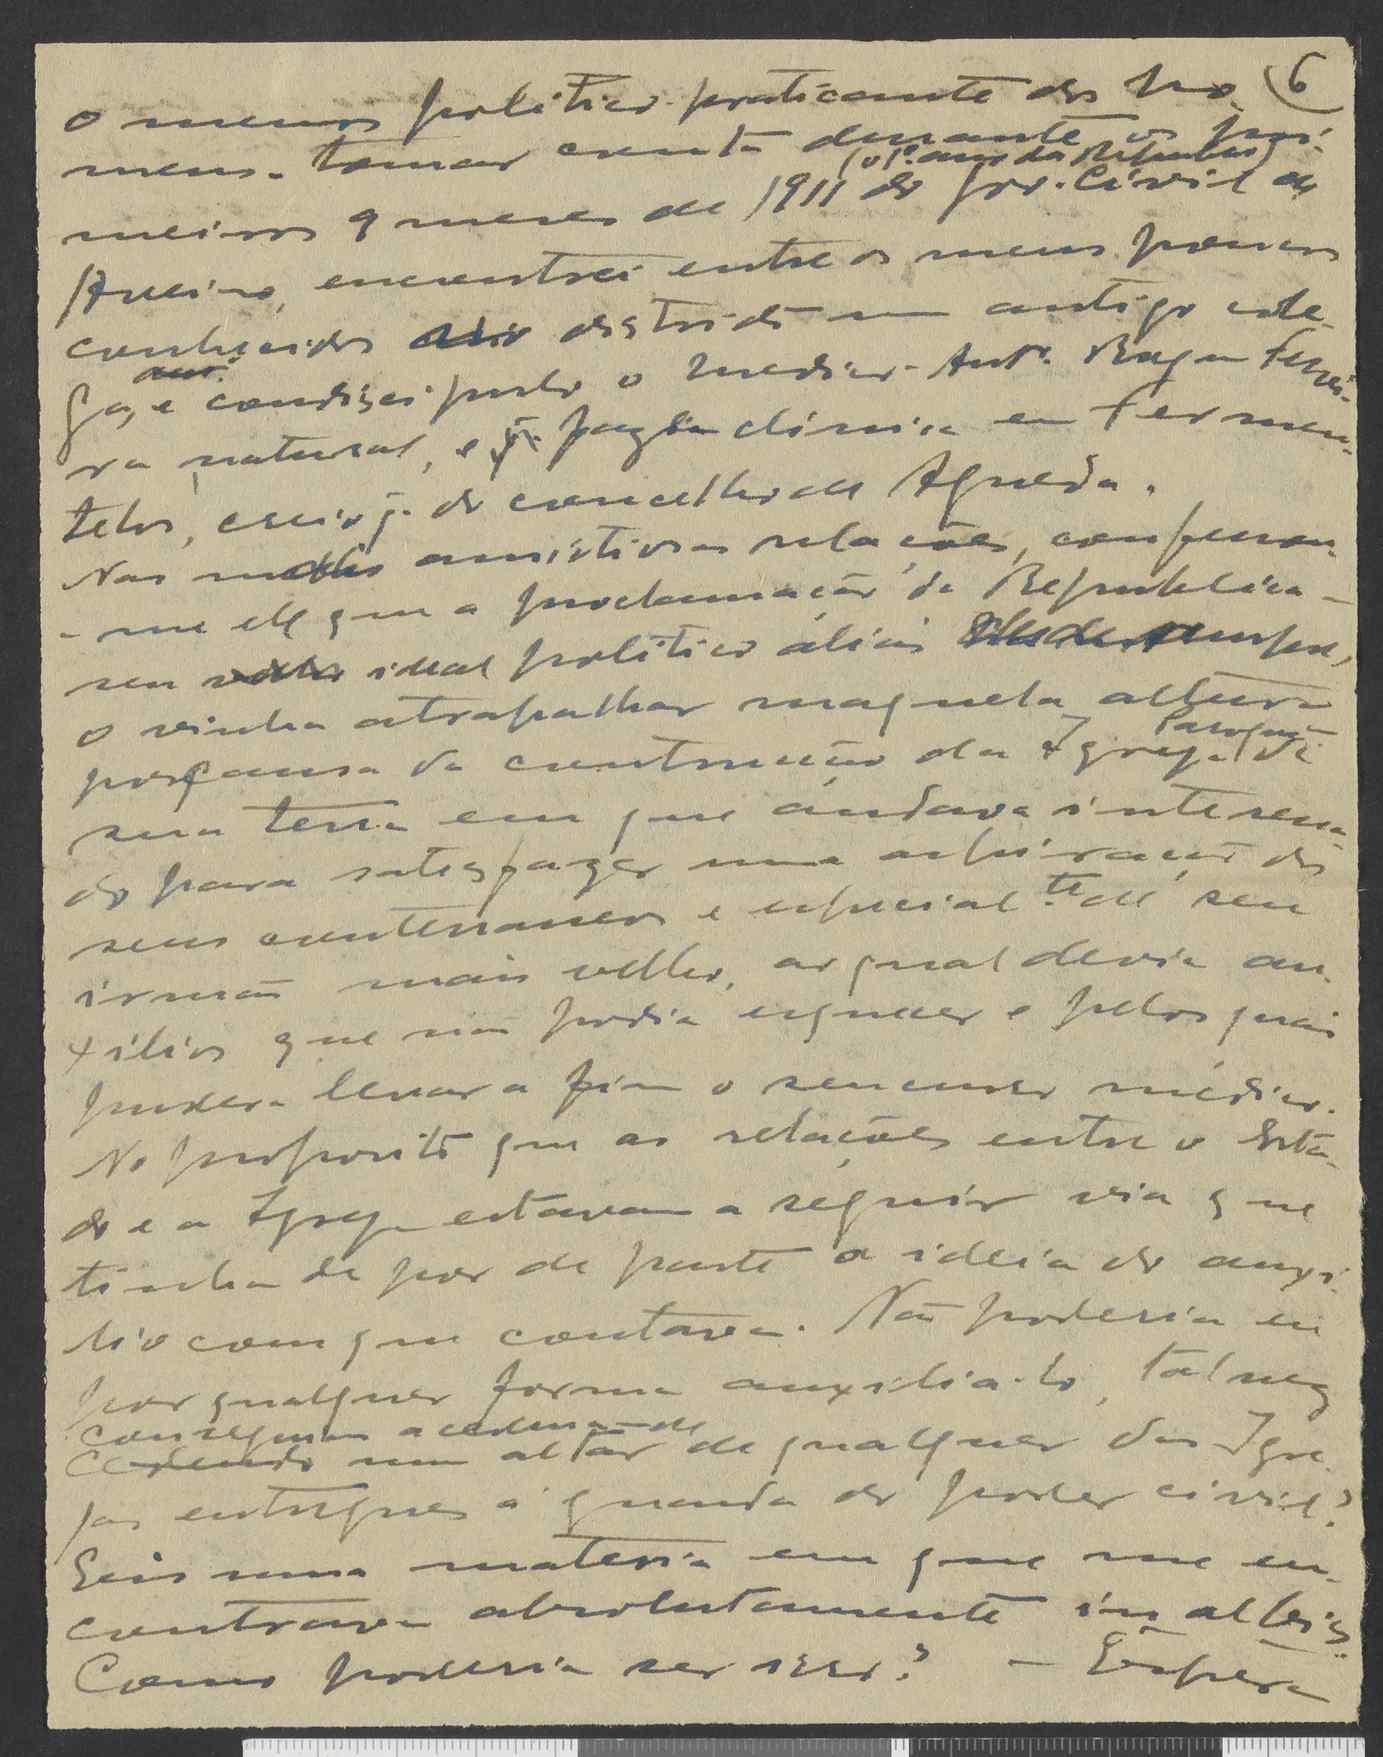 6
o menos politico praticante dos ho-
mens. tomar conta durante os pri-
(o 1º anno da Republica)
meiros 9 meses de 1911 do Gov. Civil de
Aveiro, encontrei entre os meus poucos
conhecidos do districto um antigo cole-
ga, e condiscipulo o medico Antº. Breda Ferrei-
ra natural, e q. fazia clinica em Fermen-
telos, creio q. do concelho de Agueda.
Nas amistosas relações, confessou-
-me elle que a proclamação da Republica -
seu ideal politico aliás
o vinha atrapalhar naquela altura
Paroquial
por causa da construção da Igreja de
sua terra em que andava interessa-
do para satisfazer uma aspiração dos
seus conterraneos e especialte. de seu
irmão mais velho, ao qual devia au-
xilios que não podia esquecer e pelos quais
pudera levar a fim o seu curso médico.
No proposito que as relações entre o Esta-
do e a Igreja estavam a seguir via que
tinha de por de parte a ideia do auxi-
lio com que contava. Não poderia eu
por qualquer forma auxilia-lo, talvez
conseguindo a cedencia de
cedendo um altar de qualquer das Igre-
jas entregues á guarda do poder civil?
Eis uma materia em que me en-
contrava absolutamente in albis.
Como poderia ser isso? - Espera